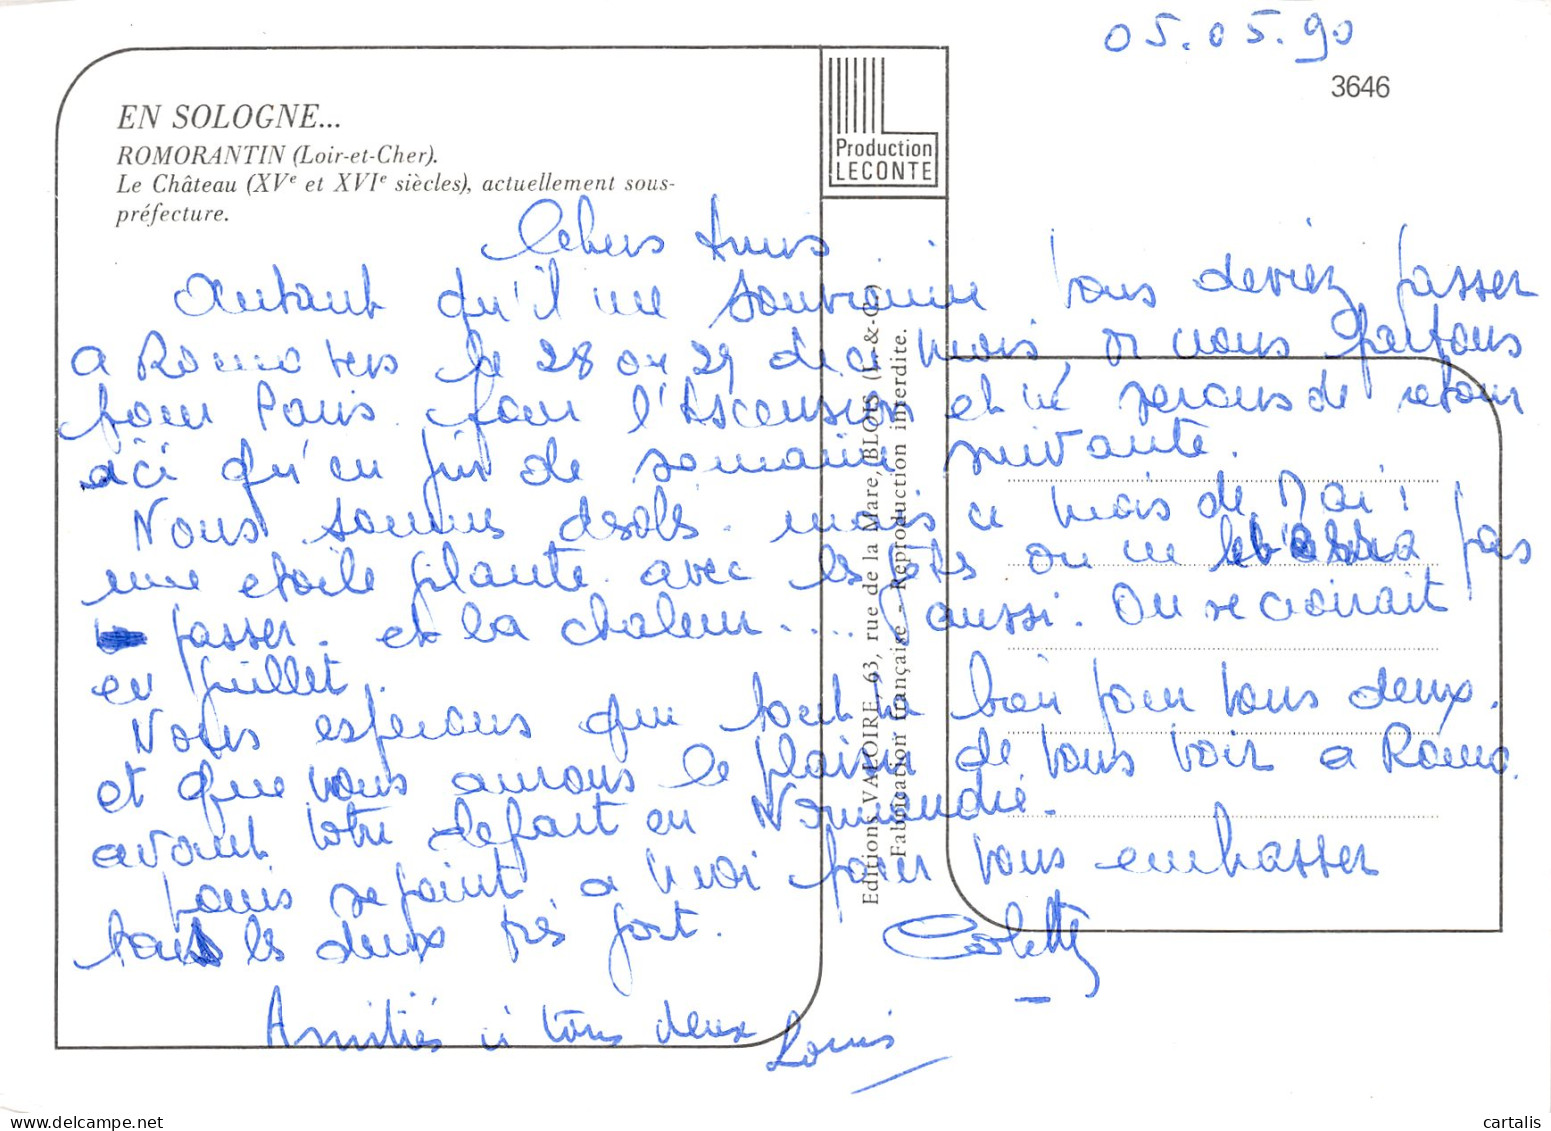 05.05.90
3646
EN SOLOGNE...
ROMORANTIN (Loir-et-Cher).
Le Château (XVe et XVIe siècles), actuellement sous-
préfecture.
Production
LECONTE
Chers Amis
Autant qu'il me souvienne vous deviez passer
a Romo vers le 28 ou 29 de ce mois, or nous partons
pour Paris pour l'Ascension et ne serons de retour
ici qu'en fin de semaine suivante.
Nous sommes désolés. mais ce mois de Mai!
une etoile filante avec les fêtes on ne le pas
passer. et la chaleur.... aussi. On se croirait
en Juillet.
Nous esperons que tout va bien pour vous deux.
et que nous aurons le plaisir de vous voir a Romo.
avant votre depart en Normandie.
Louis se joint a moi pour vous embrasser
tous les deux très fort.
Colette
Amitiés à tous deux
Louis
Editions VALOIRE 63, rue de la Mare, BLOIS (L.-&-Ch.)
Fabrication française - Reproduction interdite.
cartalis